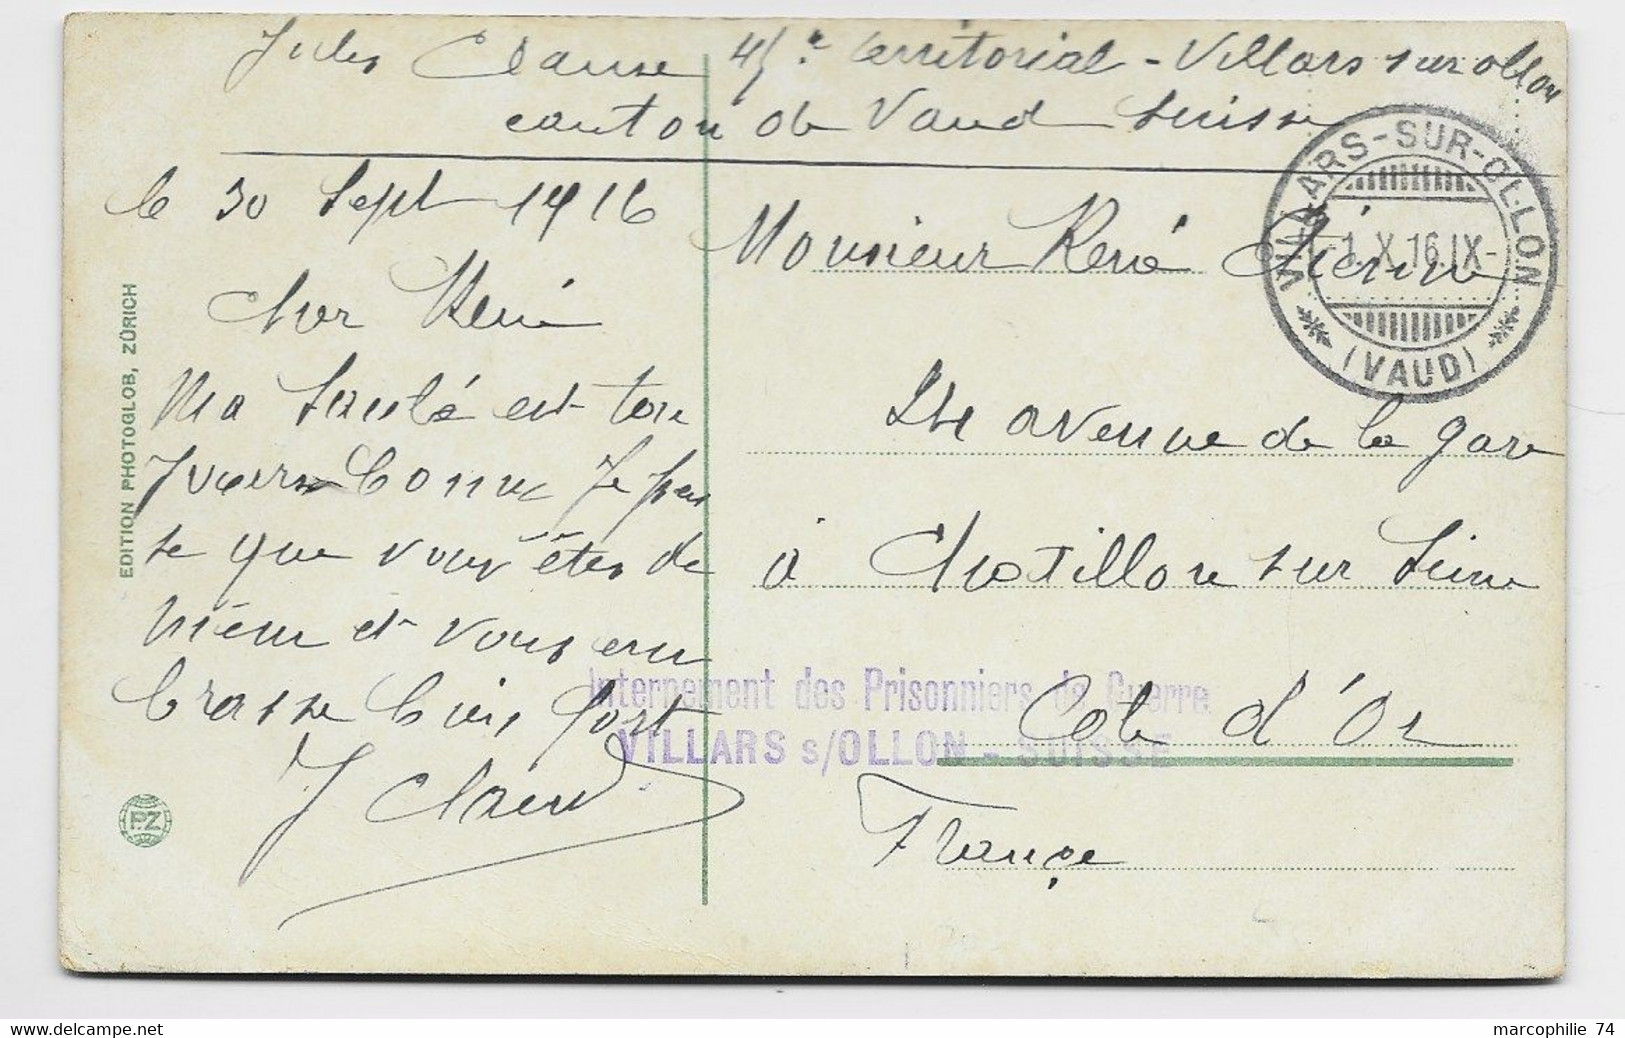 Jules Clause 45e territorial - Villars sur ollon
canton de Vaud Suisse
le 30 Sept 1916
Cher René
Ma Santé est tou
Jours bonne Je pen
se que vous êtes de
même et vous em
brasse bien fort
J Claus
Monsieur René
avenue de la gare
à Chatillon sur Seine
Cote d'Or
France
VILLARS-SUR-OLLON
-1.X.16.IX-
(VAUD)
Internement des Prisonniers de Guerre
VILLARS s/OLLON - SUISSE
EDITION PHOTOGLOB, ZÜRICH
P.Z.
marcophilie 74